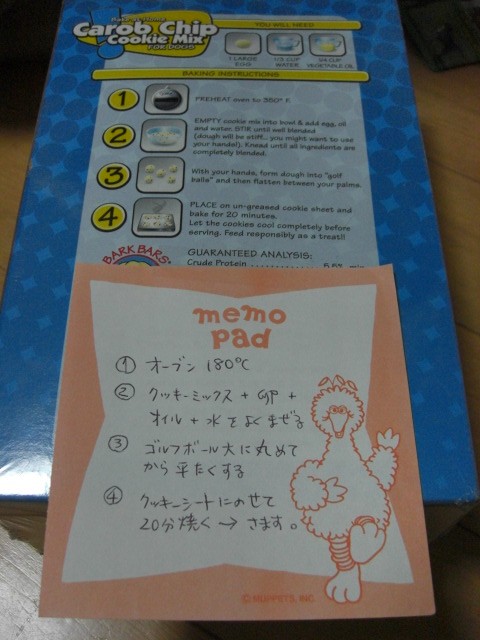 Carob Chip
Cookie Mix
FOR DOGS
YOU WILL NEED
1 LARGE EGG
1/3 CUP WATER
1/4 CUP VEGETABLE OIL
BAKING INSTRUCTIONS
1 PREHEAT oven to 350° F
2 EMPTY cookie mix into bowl & add egg, oil
and water. STIR until well blended
(dough will be stiff... you might want to use
your hands!). Knead until all ingredients are
completely blended.
3 With your hands, form dough into "golf
balls" and then flatten between your palms.
4 PLACE on un-greased cookie sheet and
bake for 20 minutes.
Let the cookies cool completely before
serving. Feed responsibly as a treat!!
BARK BARS
GUARANTEED ANALYSIS:
Crude Protein
memo
pad
① オーブン 180℃
② クッキーミックス + 卵 +
オイル + 水をよくまぜる
③ ゴルフボール大に丸めて
から平たくする
④ クッキーシートにのせて
20分焼く → さます。
© MUPPETS, INC.